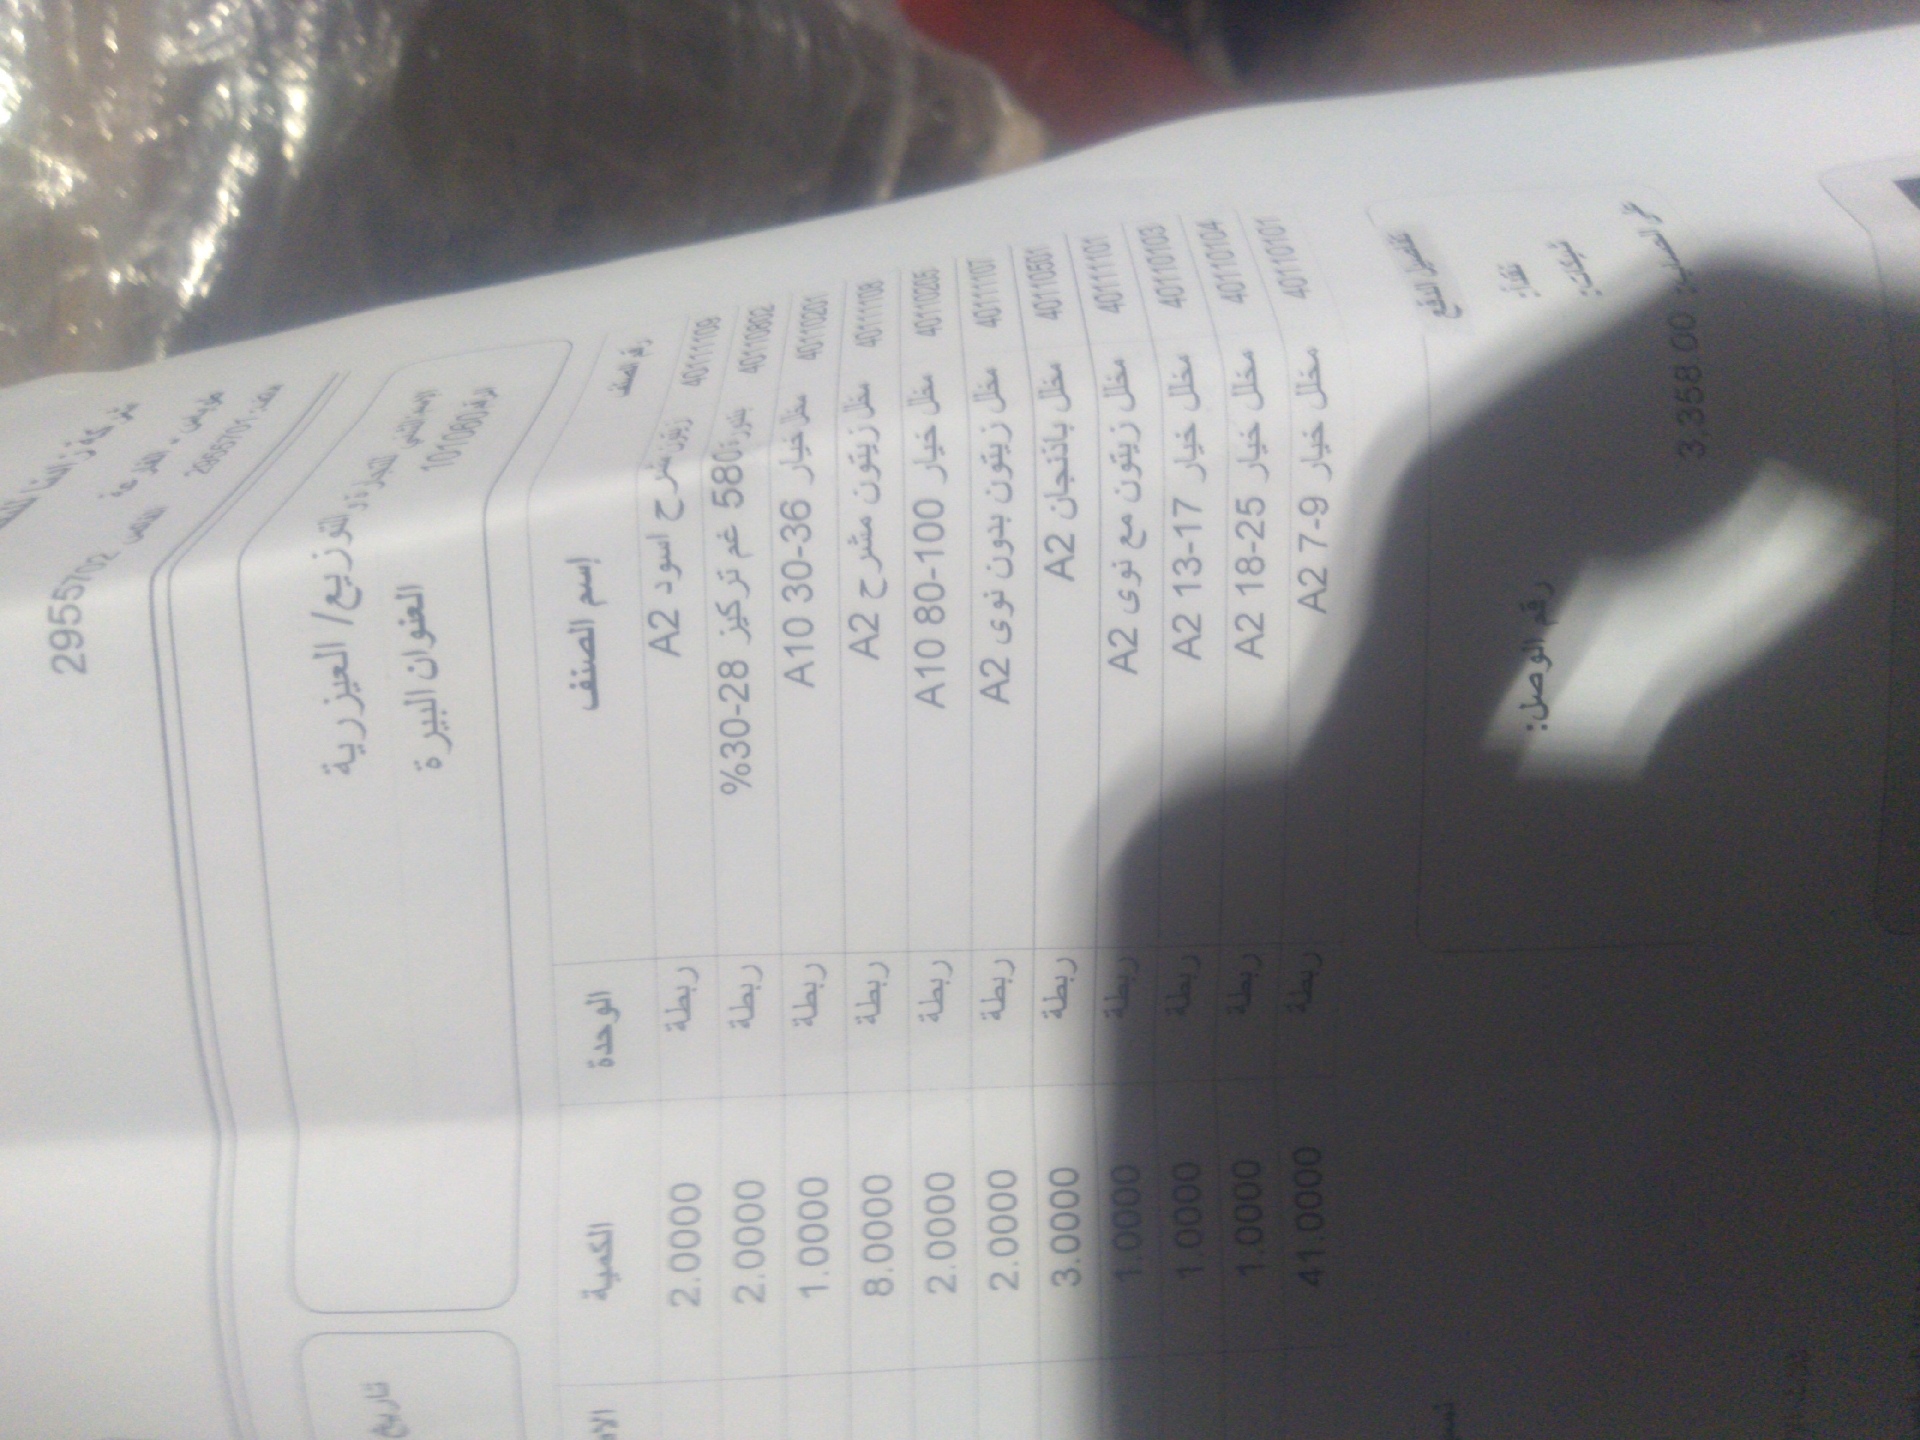 2955702
2955701
للتوزيع/ العيزرية
العنوان البيرة
101060
تاريخ
رقم الصنف إسم الصنف الوحدة الكمية
40111109 زيتون شرح اسود A2 ربطة 2.0000
40110802 بندورة 580 غم تركيز 28-30% ربطة 2.0000
40110201 مخلل خيار 30-36 A10 ربطة 1.0000
40111108 مخلل زيتون مشرح A2 ربطة 8.0000
40110205 مخلل خيار 80-100 A10 ربطة 2.0000
40111107 مخلل زيتون بدون نوى A2 ربطة 2.0000
40110501 مخلل باذنجان A2 ربطة 3.0000
40111101 مخلل زيتون مع نوى A2 ربطة 1.0000
40110103 مخلل خيار 13-17 A2 ربطة 1.0000
40110104 مخلل خيار 18-25 A2 ربطة 1.0000
40110101 مخلل خيار 7-9 A2 ربطة 41.0000
تفصيل الدفع
نقدا:
شيكات:
رقم الوصل:
3,358.00